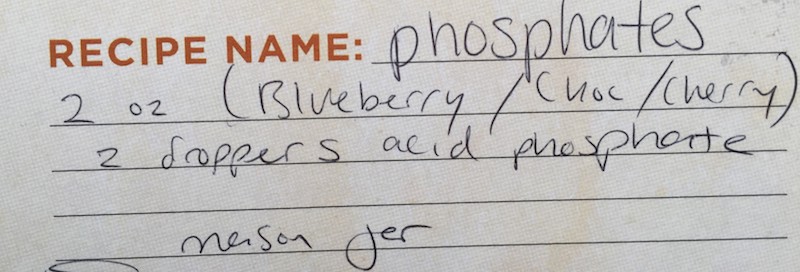 RECIPE NAME: phosphates
2 oz (Blueberry/Choc/Cherry)
2 droppers acid phosphate
mason jar